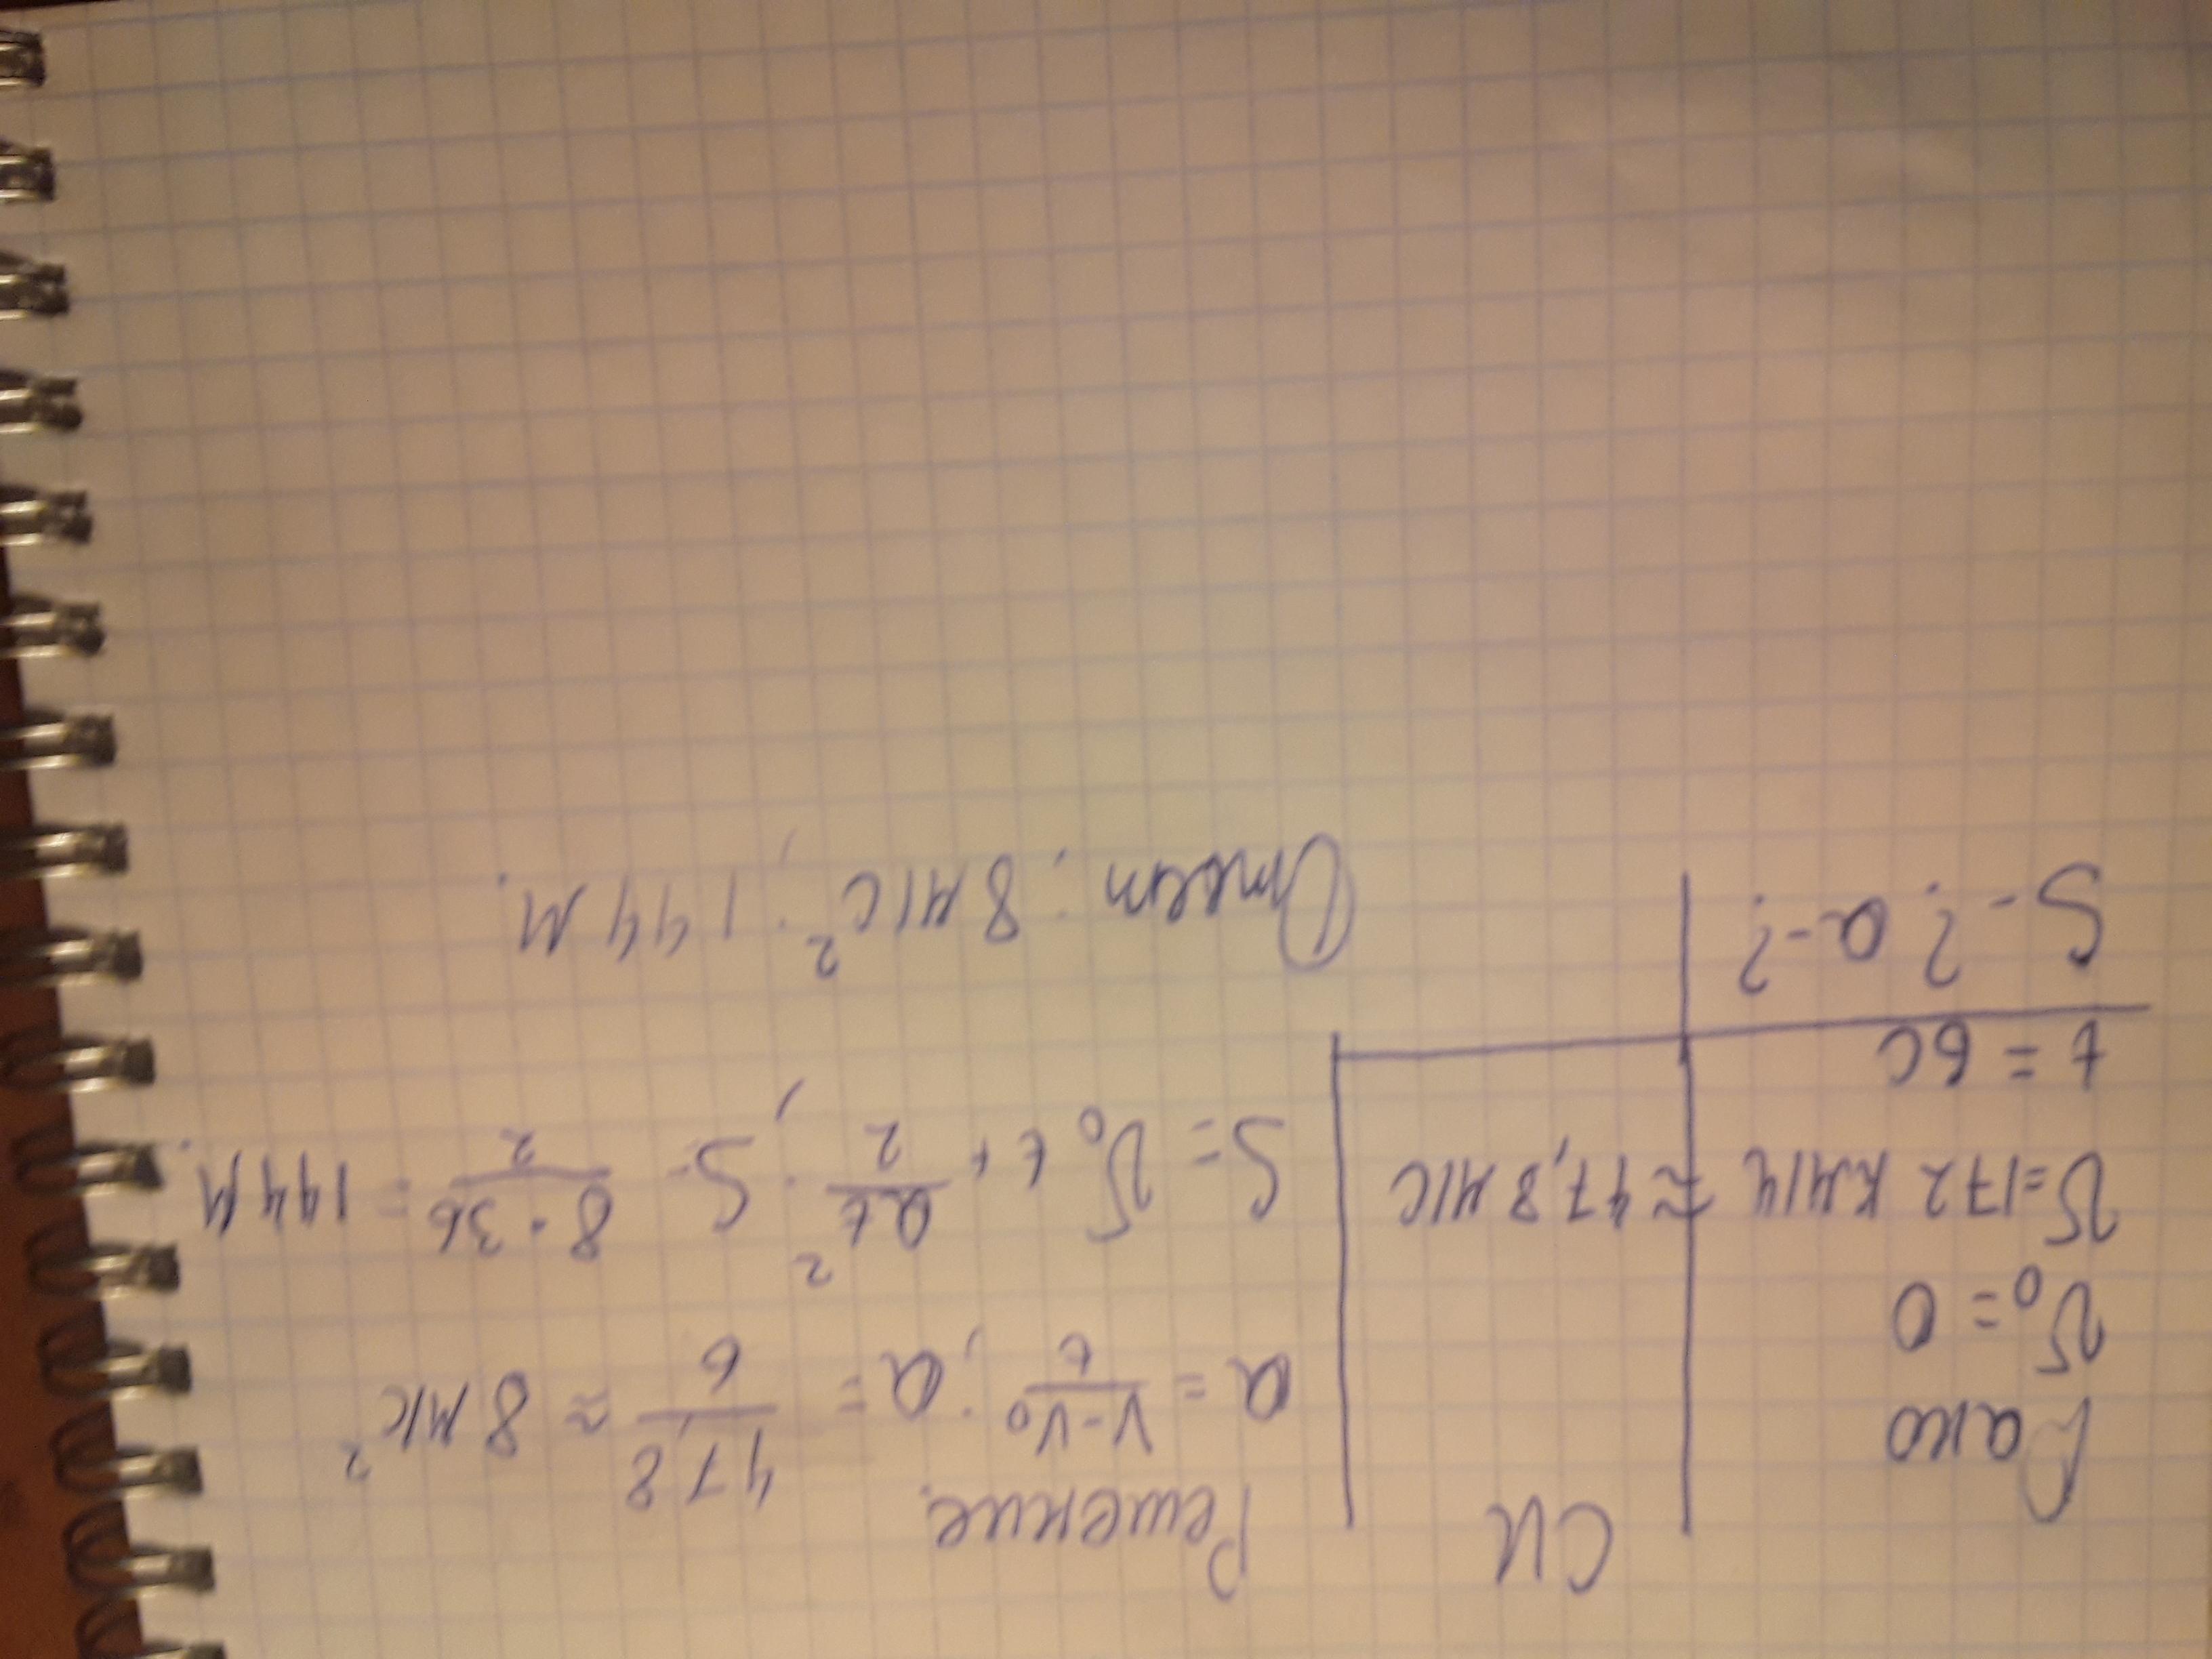 Дано
υ₀ = 0
υ=172 км/ч
t = 6с
S-? a-?
СИ
≈47,8 м/с
Решение.
a = V-V₀/t; a = 47,8/6 ≈ 8 м/с²
S= υ₀t + at²/2; S= 8·36/2 = 144м.
Ответ: 8 м/с²; 144 м.